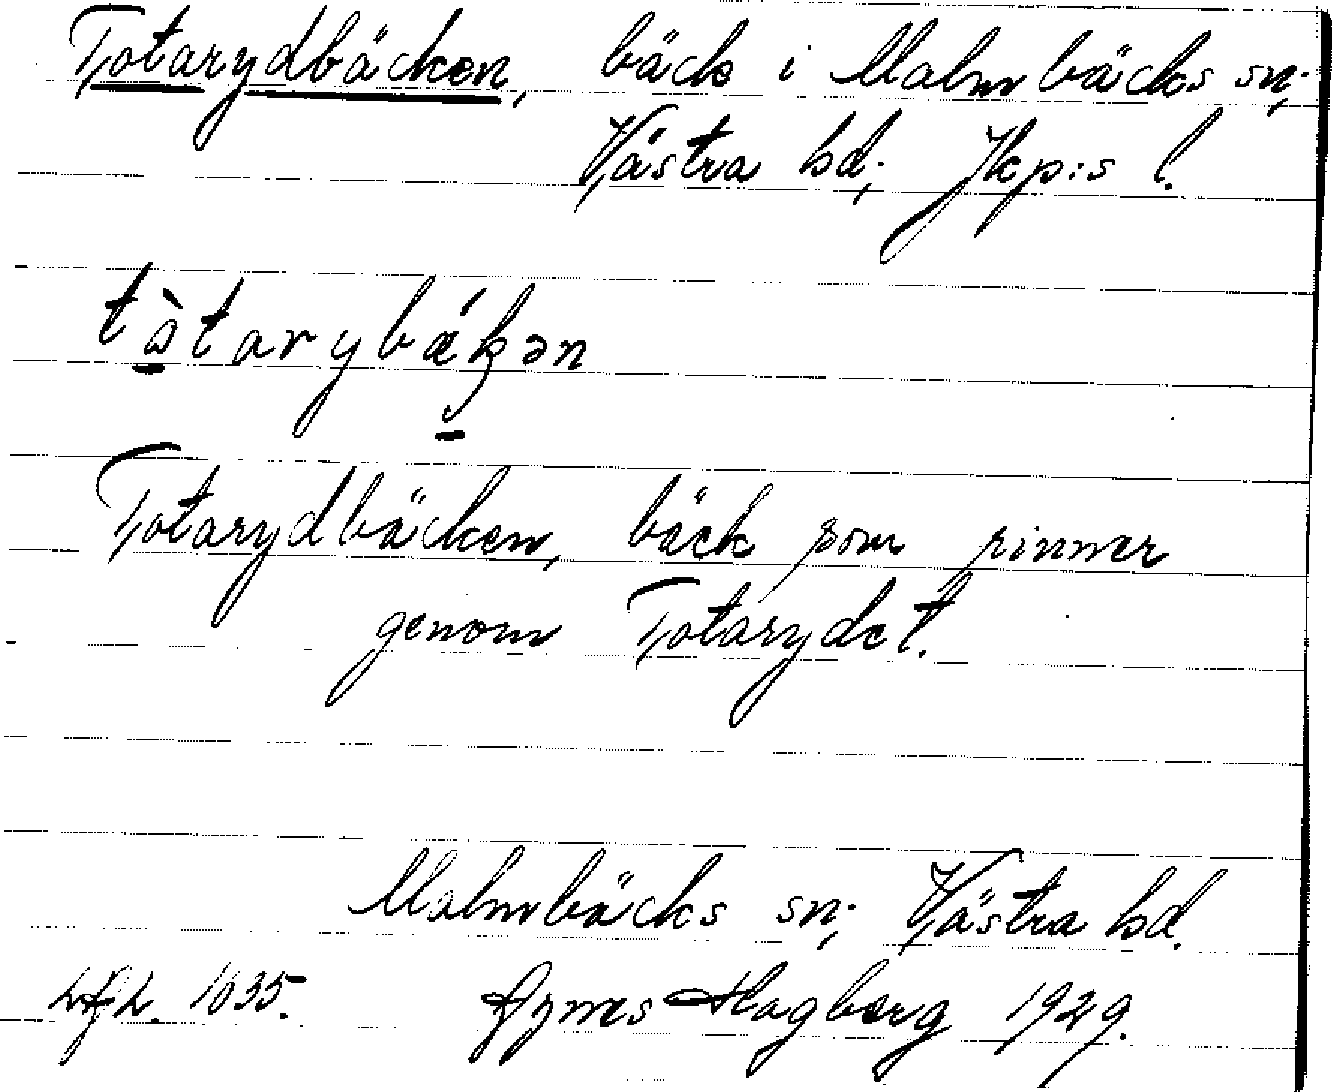 Totarydbäcken, bäck i Malmbäcks sn;
Västra hd; Jkp:s l.
tòtarybǽkən
Totarydbäcken, bäck som rinner
genom Totarydet.
Malmbäcks sn; Västra hd.
1035. Agnes Hagberg 1929.